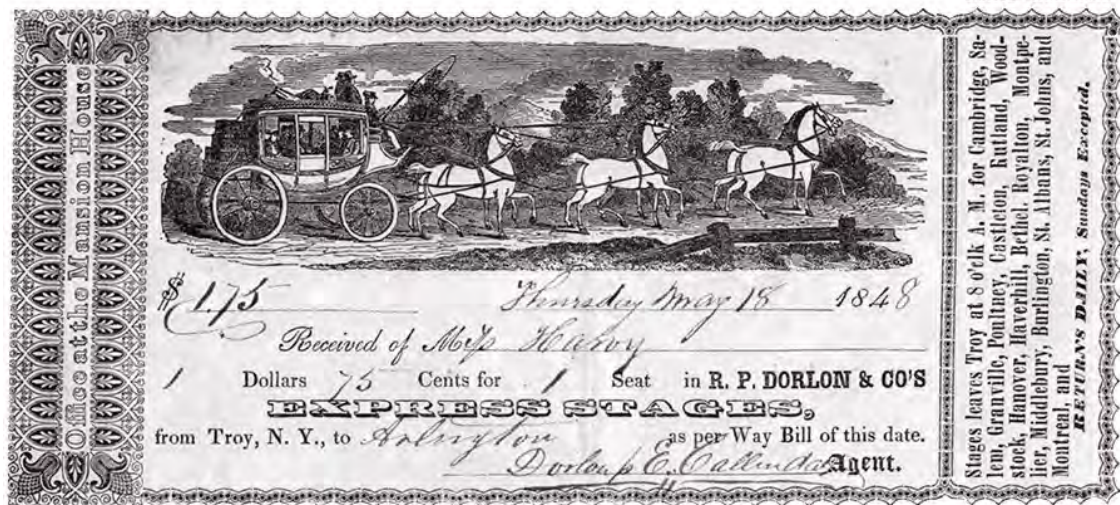 Office at the Mansion House
$ 1.75 Thursday May 18 1848
Received of Miss Harvy
1 Dollars 75 Cents for 1 Seat in R. P. DORLON & CO'S
EXPRESS STAGES,
from Troy, N. Y., to Arlington as per Way Bill of this date.
Dorlon p E. Callender Agent.
Stages leaves Troy at 8 o'clk A. M. for Cambridge, Sa-
lem, Granville, Poultney, Castleton, Rutland, Wood-
stock, Hanover, Haverhill, Bethel, Royalton, Montpe-
lier, Middlebury, Burlington, St. Albans, St. Johns, and
Montreal, and
RETURNS DAILY, Sundays Excepted.